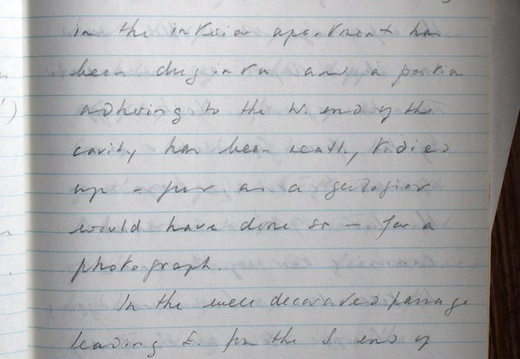 in the interior apartment has
been dug into and a portion
adhering to the W. end of the
cavity has been neatly tidied
up - just as a geologist
would have done so - for a
photograph.
In the well decorated passage
leading E. from the S. end of